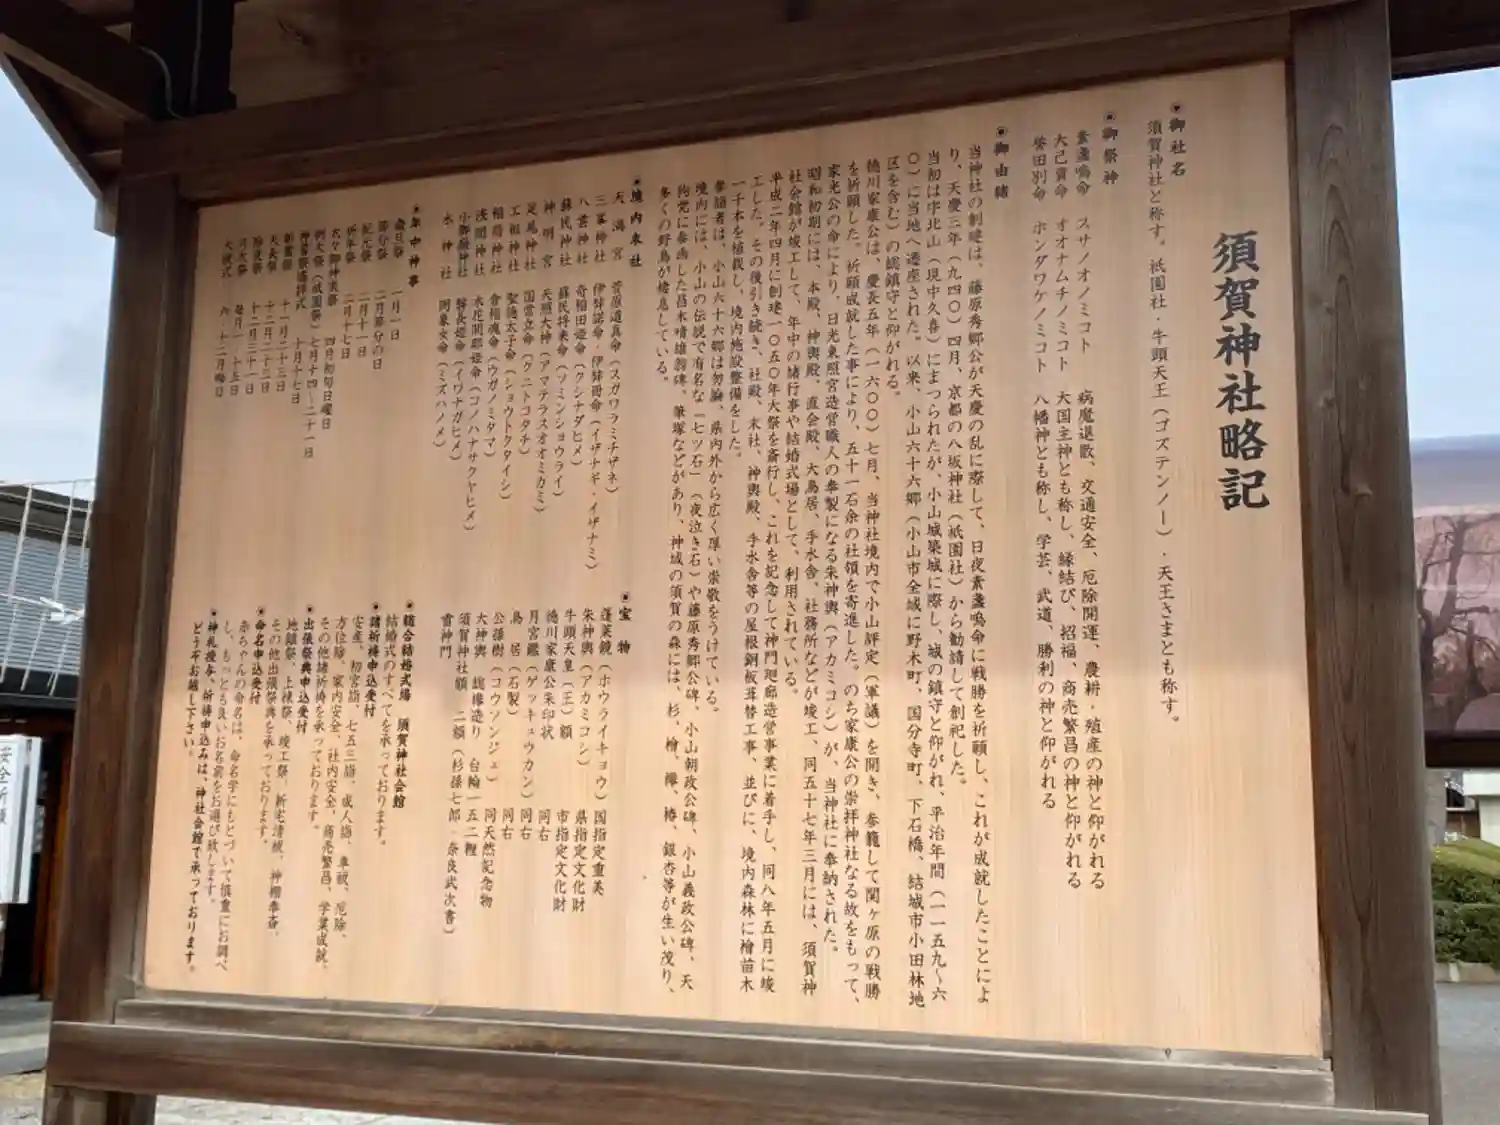 須賀神社略記
御社名
須賀神社と称す。祇園社・牛頭天王(ゴズテンノー)・天王さまとも称す。
御祭神
素盞嗚命 スサノオノミコト 病魔退散、交通安全、厄除開運、農耕・殖産の神と仰がれる
大己貴命 オオナムチノミコト 大国主神とも称し、縁結び、招福、商売繁昌の神と仰がれる
誉田別命 ホンダワケノミコト 八幡神とも称し、学芸、武道、勝利の神と仰がれる
御由緒
当神社の創建は、藤原秀郷公が天慶の乱に際して、日夜素盞嗚命に戦勝を祈願し、これが成就したことによ
り、天慶三年(九四〇)四月、京都の八坂神社(祇園社)から勧請して創祀した。
当初は字北山(現中久喜)にまつられたが、小山城築城に際し、城の鎮守と仰がれ、平治年間(一一五九〜六
〇)に当地へ遷座された。以来、小山六十六郷(小山市全域に野木町、国分寺町、下石橋、結城市小田林地
区を含む)の総鎮守と仰がれる。
徳川家康公は、慶長五年(一六〇〇)七月、当神社境内で小山評定(軍議)を開き、参籠して関ヶ原の戦勝
を祈願した。祈願成就した事により、五十一石余の社領を寄進した。のち家康公の崇拝神社なる故をもって、
家光公の命により、日光東照宮造営職人の奉製になる朱神輿(アカミコシ)が、当神社に奉納された。
昭和初期には、本殿、神輿殿、直会殿、大鳥居、手水舎、社務所などが竣工、同五十七年三月には、須賀神
社会館が竣工して、年中の諸行事や結婚式場として、利用されている。
平成二年四月に創建一〇五〇年大祭を斎行し、これを記念して神門廻廊造営事業に着手し、同八年五月に竣
工した。その後引き続き、社殿、末社、神輿殿、手水舎等の屋根銅板葺替工事、並びに、境内森林に檜苗木
一千本を植栽し、境内施設整備をした。
参詣者は、小山六十六郷は勿論、県内外から広く厚い崇敬をうけている。
境内には、小山の伝説で有名な「七ツ石」(夜泣き石)や藤原秀郷公碑、小山朝政公碑、小山義政公碑、天
狗党に参画した昌木晴雄翁碑、筆塚などがあり、神域の須賀の森には、杉、檜、欅、椿、銀杏等が生い茂り、
多くの野鳥が棲息している。
境内末社
天満宮 菅原道真命(スガワラミチザネ)
三峯神社 伊弉諾命・伊弉冊命(イザナギ・イザナミ)
八雲神社 奇稲田姫命(クシナダヒメ)
蘇民神社 蘇民将来命(ソミンショウライ)
神明宮 天照大神(アマテラスオオミカミ)
足尾神社 国常立命(クニトコタチ)
工祖神社 聖徳太子命(ショウトクタイシ)
稲荷神社 倉稲魂命(ウガノミタマ)
浅間神社 木花開耶姫命(コノハナサクヤヒメ)
小御嶽神社 磐長姫命(イワナガヒメ)
水神社 罔象女命(ミズハノメ)
宝物
蓬莱鏡(ホウライキョウ)国指定重美
朱神輿(アカミコシ) 県指定文化財
牛頭天皇(王)額 市指定文化財
徳川家康公朱印状 同右
月宮鑑(ゲッキュウカン) 同右
鳥居(石製) 同右
公孫樹(コウソンジュ) 同天然記念物
大神輿 総欅造り 台輪一五二糎
須賀神社額 二額(杉孫七郎・奈良武次書)
雷神門
年中神事
歳旦祭 一月一日
節分祭 二月節分の日
紀元祭 二月十一日
祈年祭 二月十七日
太々御神楽祭 四月初旬日曜日
例大祭(祇園祭)七月十四〜二十一日
神嘗祭遙拝式 十月十七日
新嘗祭 十一月二十三日
天長祭 十二月二十三日
除夜祭 十二月三十一日
月次祭 毎月一・十五日
大祓式 六・十二月晦日
総合結婚式場 須賀神社会館
結婚式のすべてを承っております。
諸祈祷申込受付
安産、初宮詣、七五三詣、成人詣、車祓、厄除、
方位除、家内安全、社内安全、商売繁昌、学業成就、
その他諸祈祷を承っております。
出張祭典申込受付
地鎮祭、上棟祭、竣工祭、新宅清祓、神棚奉斎、
その他出張祭典を承っております。
命名申込受付
赤ちゃんの命名は、命名学にもとづいて慎重にお調べ
し、もっとも良いお名前をお選び致します。
神札授与、祈祷申込みは、神社会館で承っております。
どうぞお越し下さい。
安全祈願